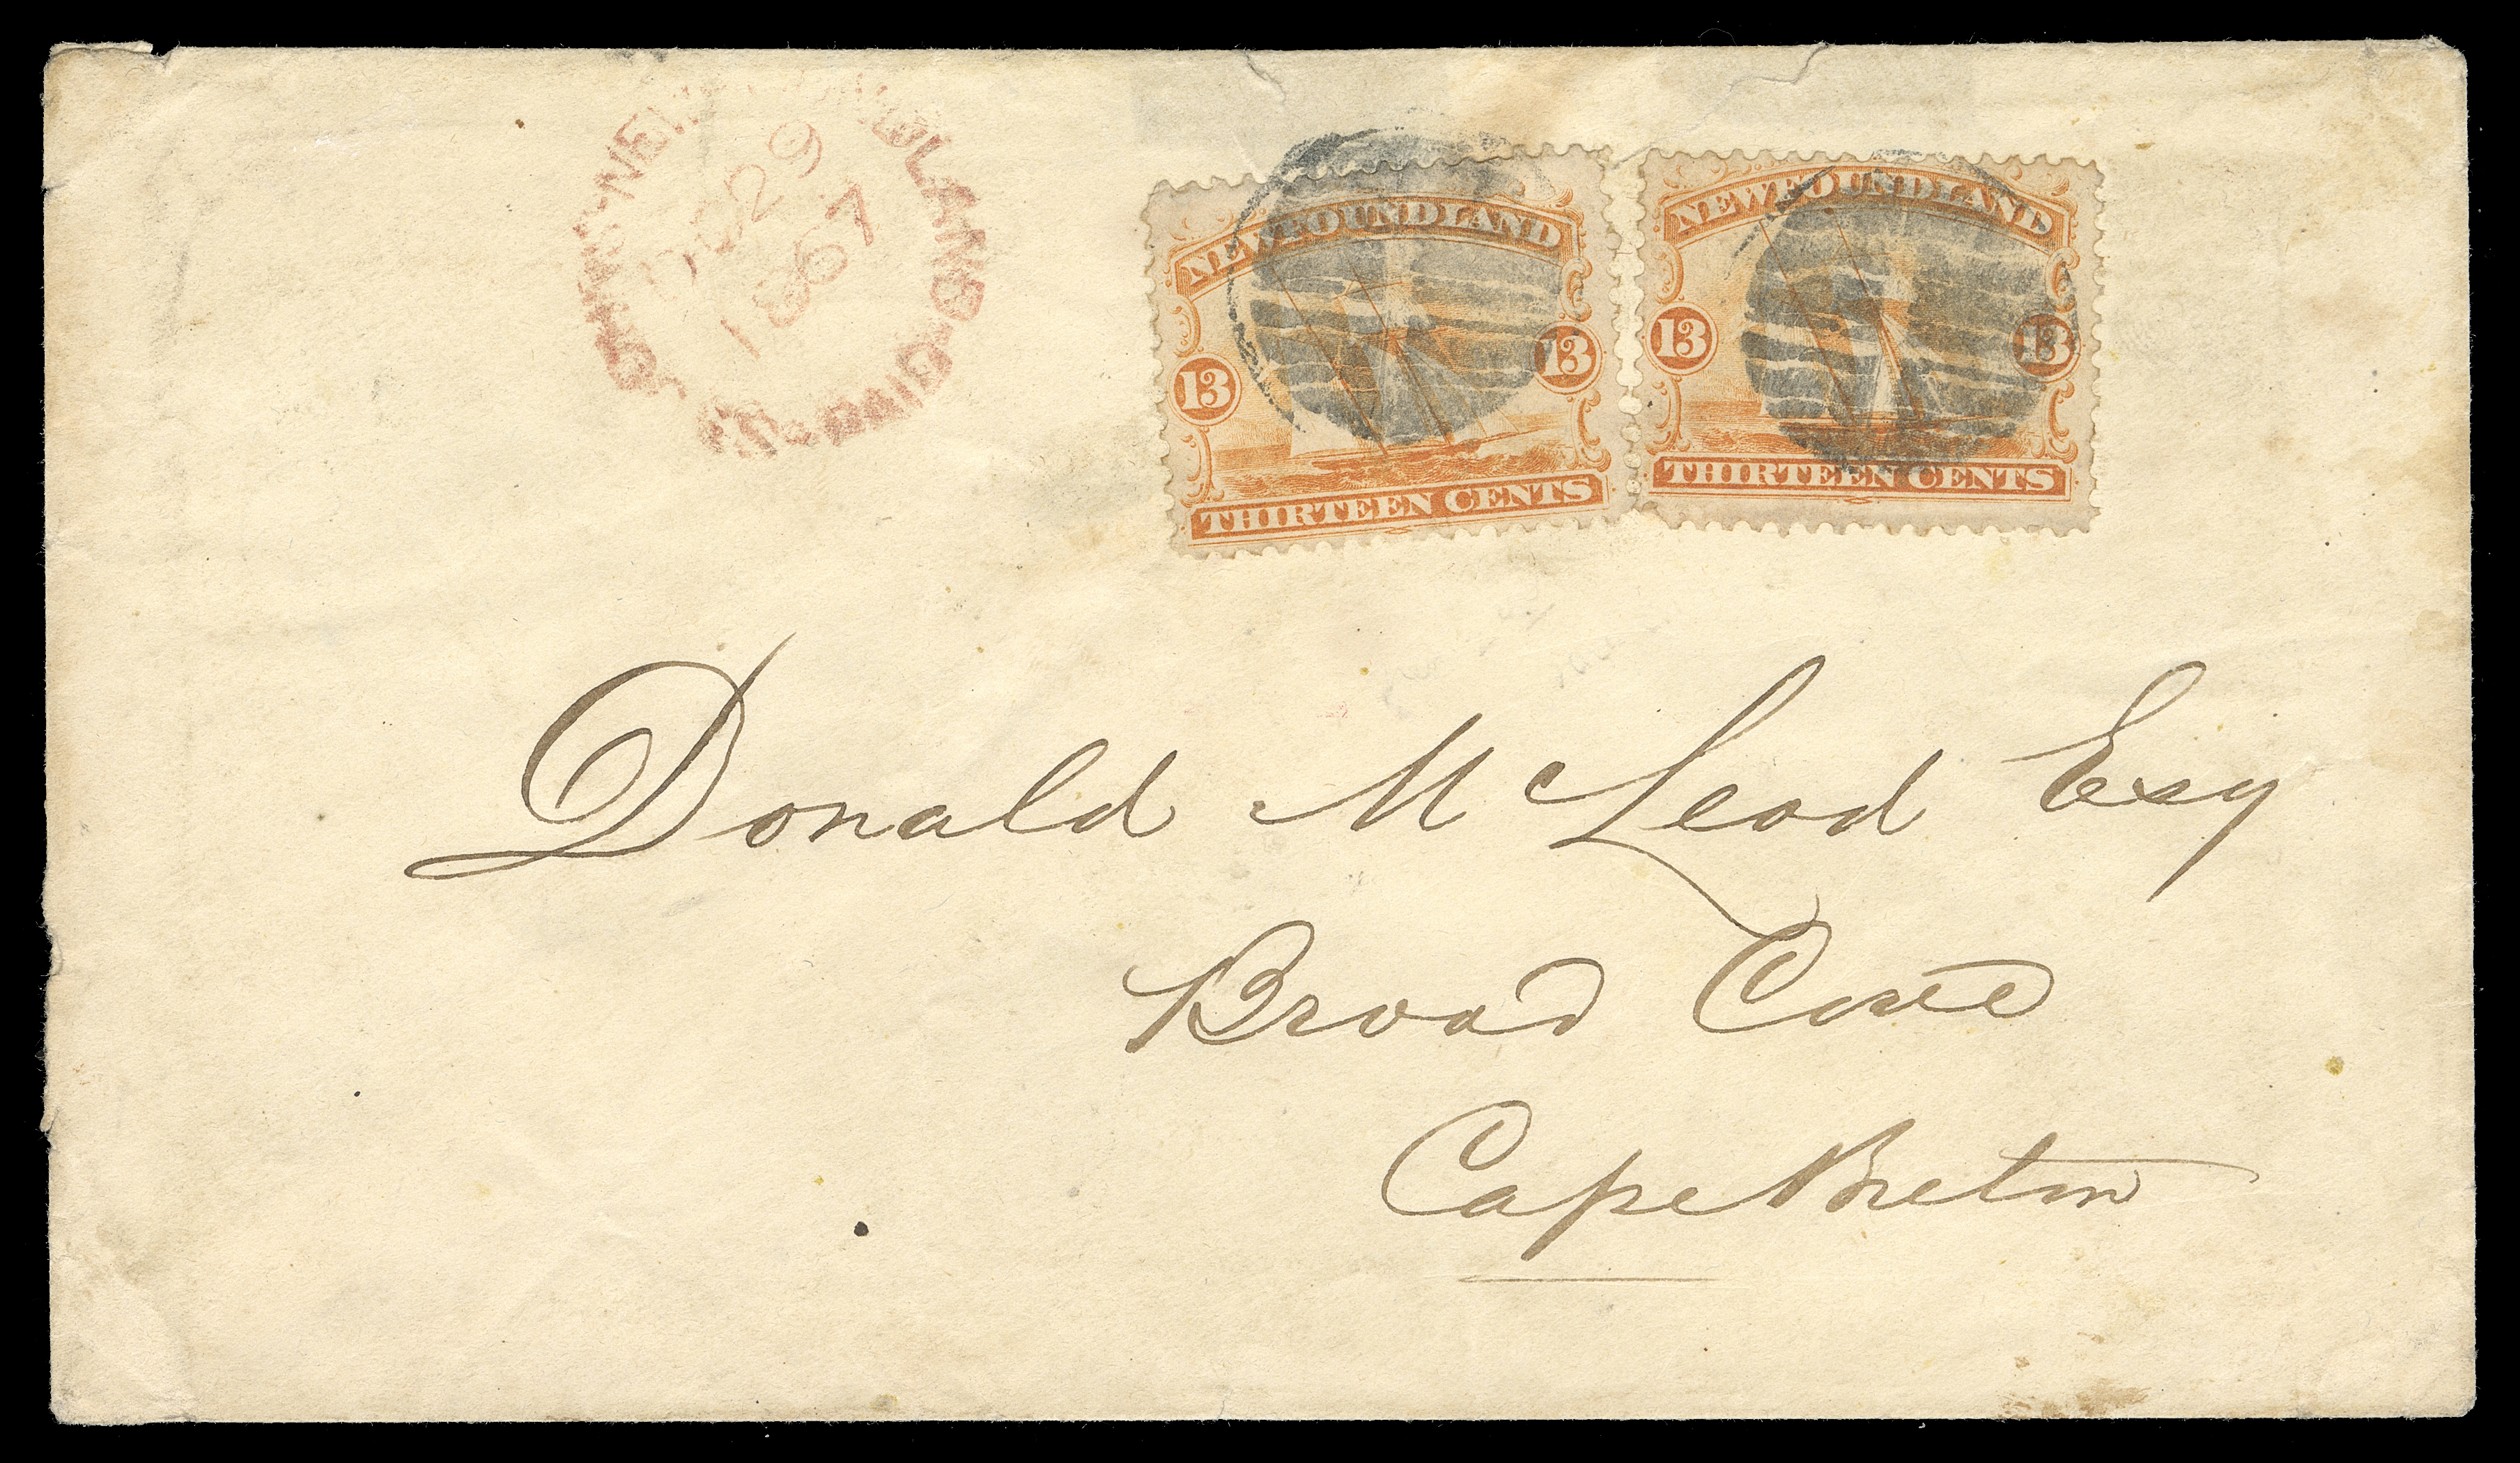 ST. JOHN'S · NEWFOUNDLAND · PAID
29
1867
NEWFOUNDLAND
13 13
THIRTEEN CENTS
NEWFOUNDLAND
13 13
THIRTEEN CENTS
Donald McLeod Esq
Broad Cove
Cape Breton